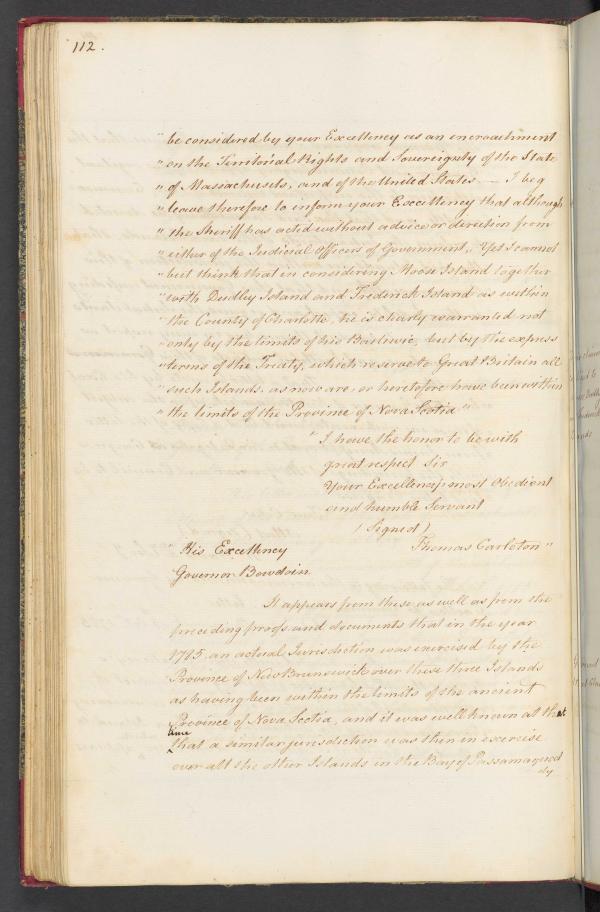 112.
" be considered by your Excellency as an encroachment
" on the Territorial Rights and Sovereignty of the State
" of Massachusets, and of the United States — I beg
" leave therefore to inform your Excellency that although
" the Sheriff has acted without advice or direction from
" either of the Judicial Officers of Government, Yet I cannot
" but think that in considering Moose Island together
" with Dudley Island and Frederick Island as within
" the County of Charlotte, he is clearly warranted not
" only by the limits of his Bailiwic, but by the express
" terms of the Treaty, which reserve to Great Britain all
" such Islands, as now are, or heretofore have been within
" the limits of the Province of Nova Scotia "
" I have the honor to be with
great respect Sir
Your Excellency's most Obedient
and humble Servant
(Signed)
Thomas Carleton "
" His Excellency
Governor Bowdoin
It appears from these as well as from the
preceding proofs and documents that in the year
1785 an actual Jurisdiction was exercised by the
Province of New Brunswick over these three Islands
as having been within the limits of the ancient
Province of Nova Scotia, and it was well known at that
time
that a similar jurisdiction was then in exercise
over all the other Islands in the Bay of Passamaquod
dy